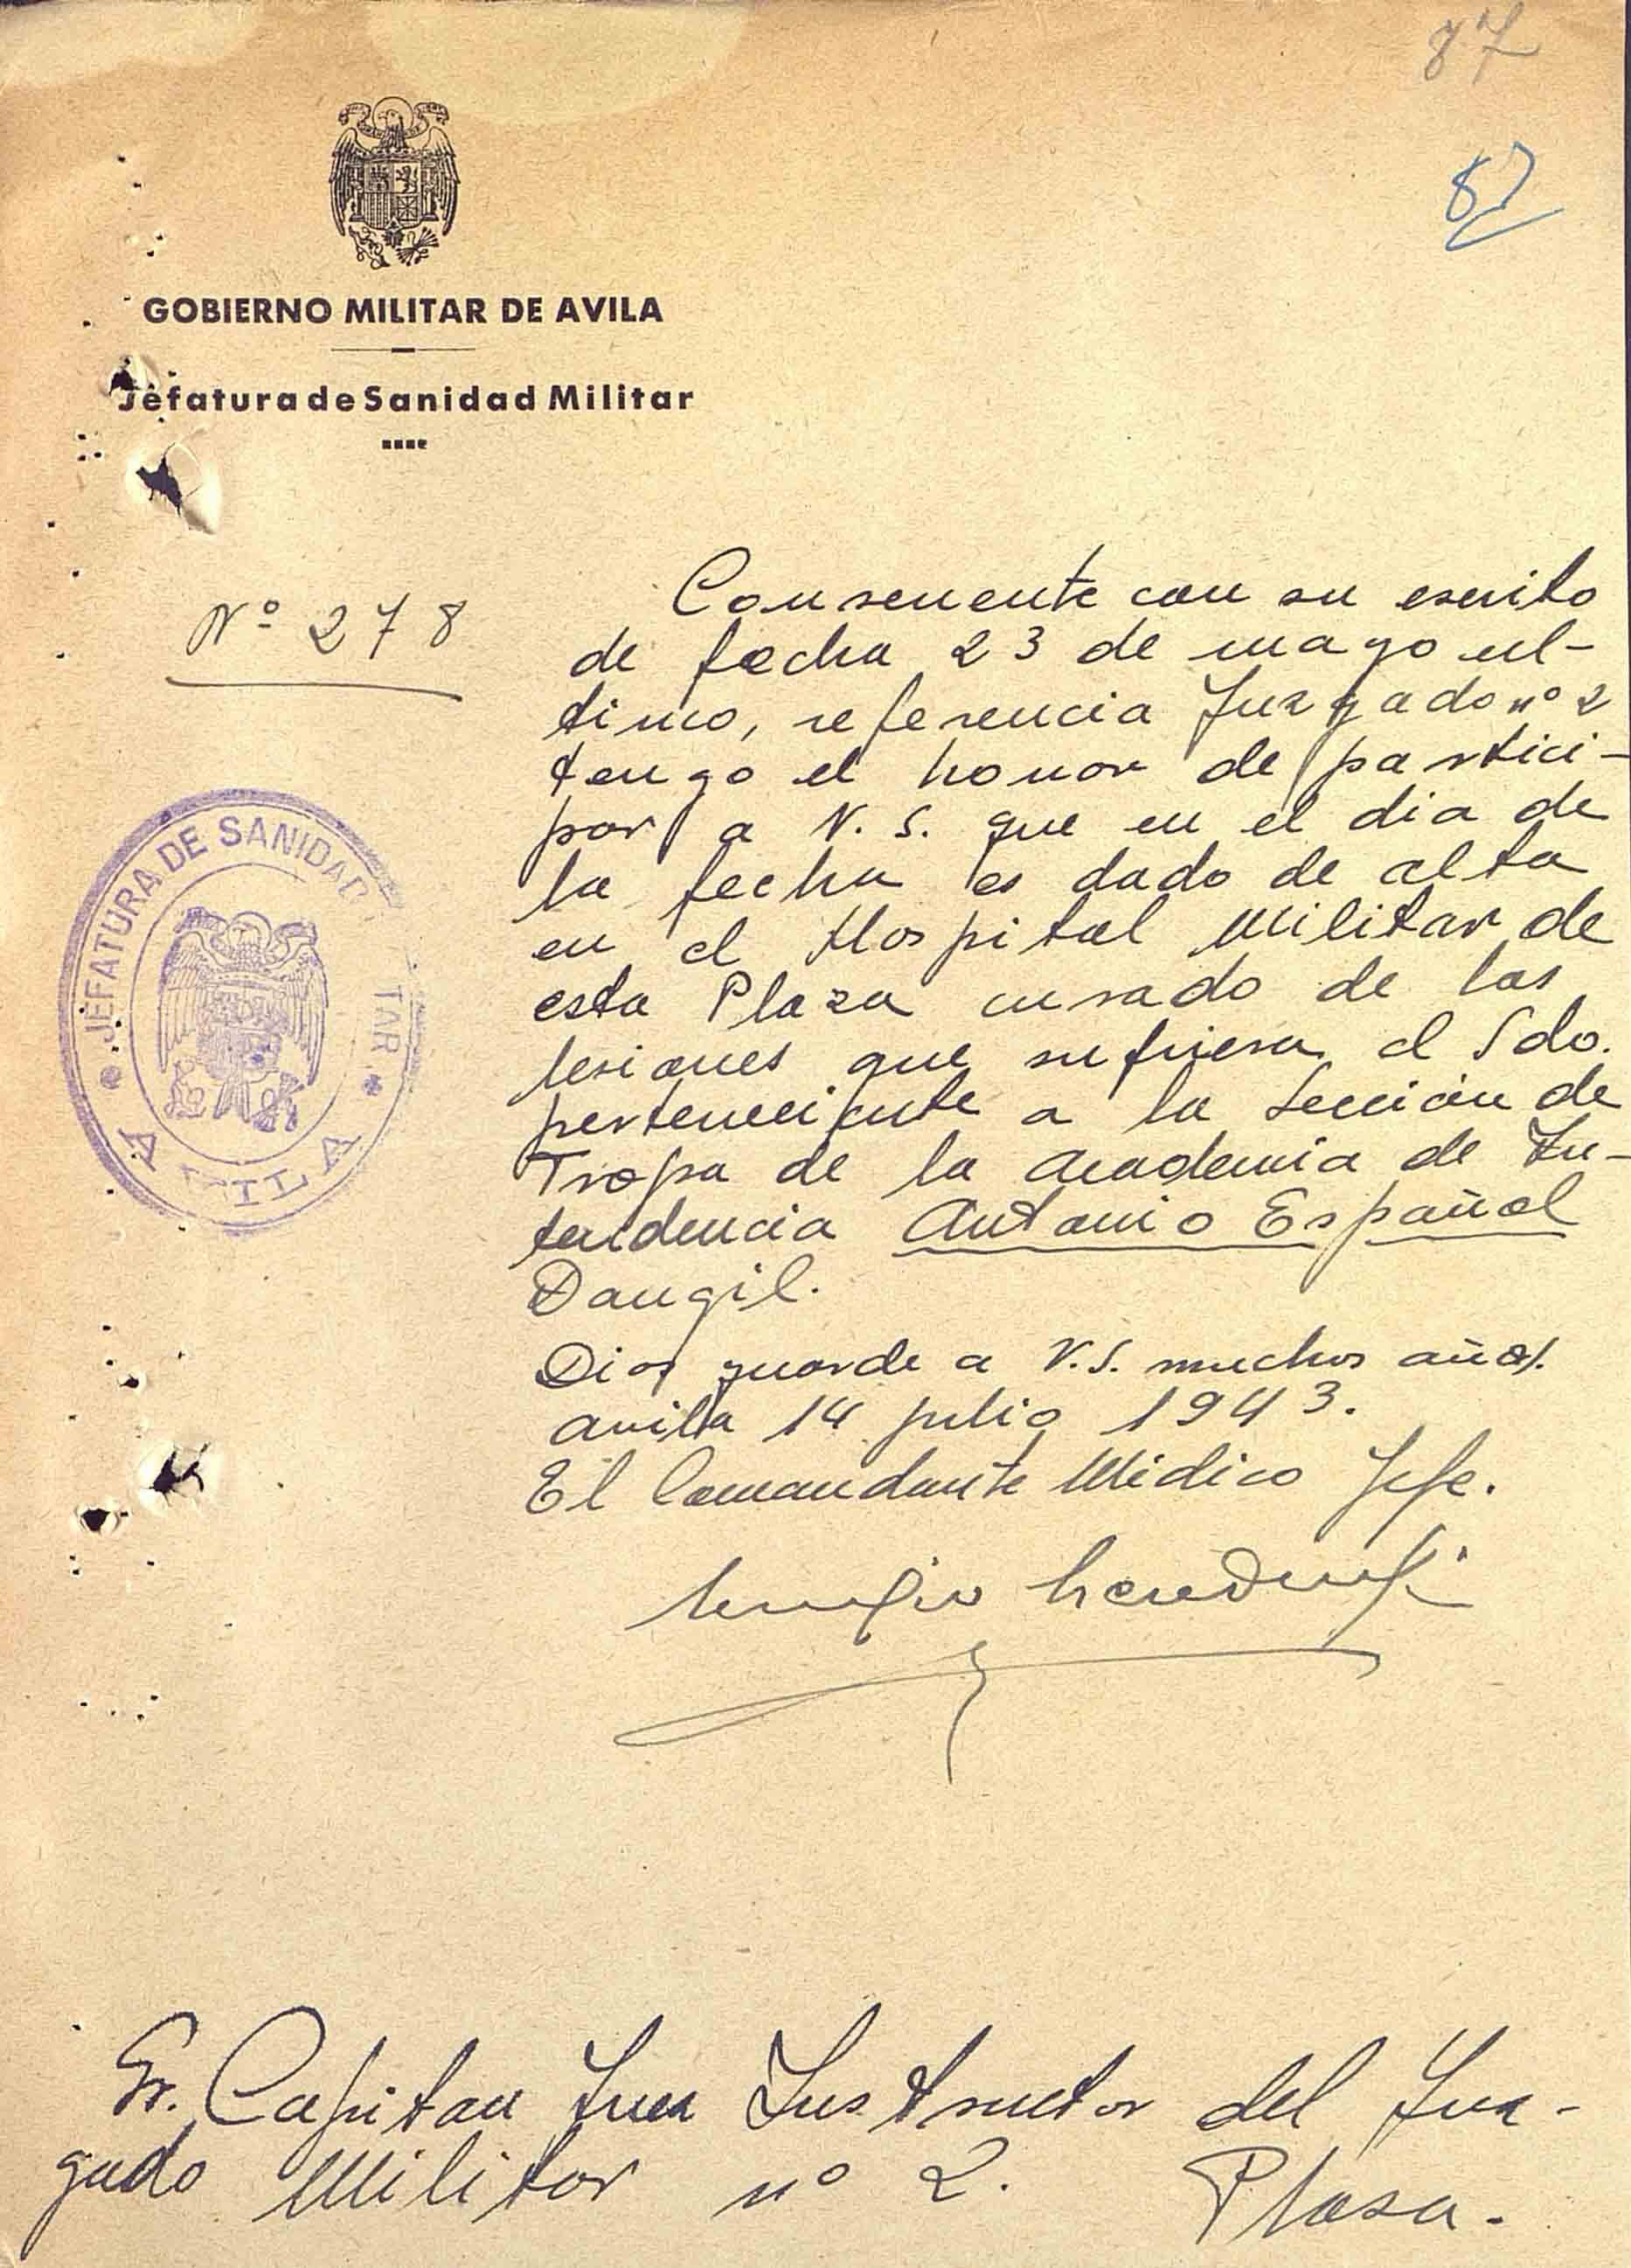 87
87
GOBIERNO MILITAR DE AVILA
Jefatura de Sanidad Militar
Nº 278
Consecuente con su escrito
de fecha 23 de mayo ul-
timo, referencia Juzgado nº 2
tengo el honor de partici-
par a V. S. que en el dia de
la fecha es dado de alta
en el Hospital Militar de
esta Plaza curado de las
lesiones que sufriera el Sdo.
perteneciente a la Sección de
Tropa de la Academia de In-
tendencia Antonio Español
Daugil.
Dios guarde a V.S. muchos años.
Avila 14 julio 1943.
El Comandante Médico Jefe.
JEFATURA DE SANIDAD TAR
AVILA
Sr. Capitan Juez Instructor del Juz-
gado Militar nº 2. Plaza.